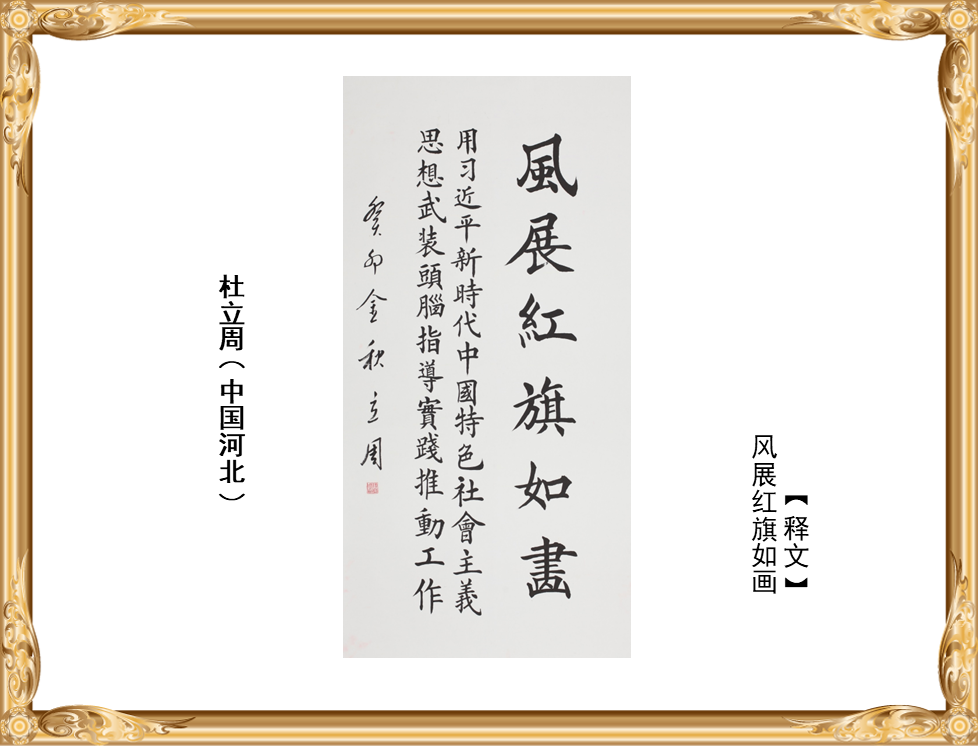 【释文】
风展红旗如画
風展紅旗如畵
用习近平新時代中國特色社會主義
思想武装頭腦指導實踐推動工作
癸卯金秋立周
杜立周（中国河北）